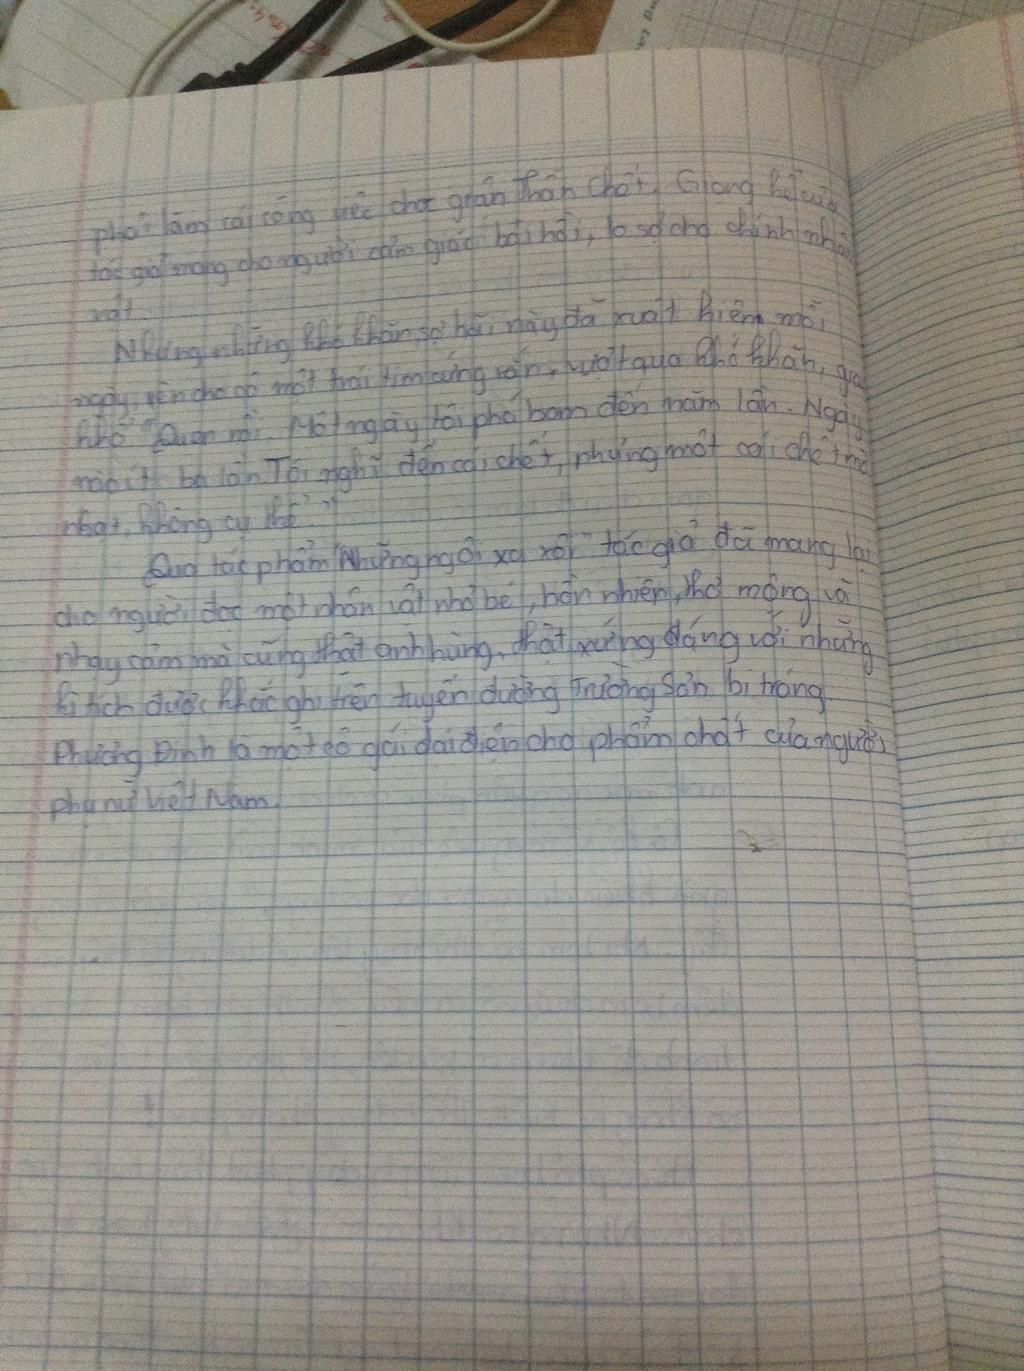 phải làm cái công việc chọc giận thần chết. Giọng kể của
tác giả mang cho người cảm giác hồi hồi, lo sợ cho chính nhân
vật.
Nhưng những khó khăn, sợ hãi này đã xuất hiện mỗi
ngày, rèn cho cô một trái tim cứng rắn, vượt qua khó khăn, gian
khổ "Quen rồi. Một ngày tôi phá bom đến năm lần. Ngày
nào ít ba lần. Tôi nghĩ đến cái chết, nhưng một cái chết mờ
nhạt, không cụ thể"
Qua tác phẩm "Những ngôi sao xa xôi" tác giả đã mang lại
cho người đọc một nhân vật nhỏ bé, hồn nhiên, thơ mộng và
nhạy cảm mà cũng thật anh hùng, thật xứng đáng với những
kì tích được khắc ghi trên tuyến đường Trường Sơn bi tráng.
Phương Định là một cô gái đại diện cho phẩm chất của người
phụ nữ Việt Nam.